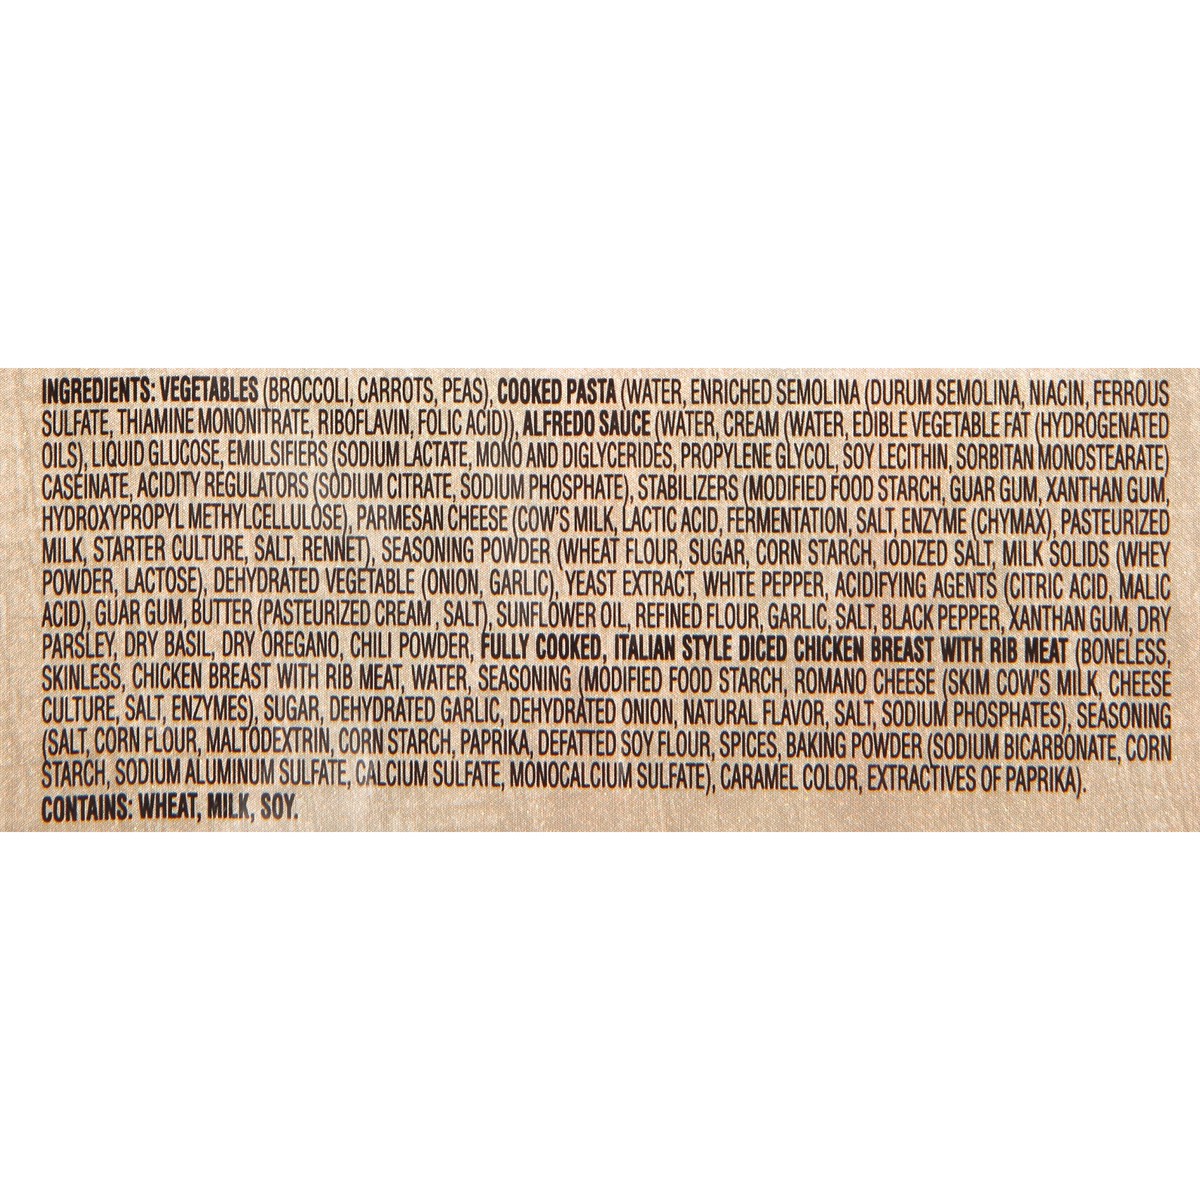 INGREDIENTS: VEGETABLES (BROCCOLI, CARROTS, PEAS), COOKED PASTA (WATER, ENRICHED SEMOLINA (DURUM SEMOLINA, NIACIN, FERROUS
SULFATE, THIAMINE MONONITRATE, RIBOFLAVIN, FOLIC ACID)), ALFREDO SAUCE (WATER, CREAM (WATER, EDIBLE VEGETABLE FAT (HYDROGENATED
OILS), LIQUID GLUCOSE, EMULSIFIERS (SODIUM LACTATE, MONO AND DIGLYCERIDES, PROPYLENE GLYCOL, SOY LECITHIN, SORBITAN MONOSTEARATE)
CASEINATE, ACIDITY REGULATORS (SODIUM CITRATE, SODIUM PHOSPHATE), STABILIZERS (MODIFIED FOOD STARCH, GUAR GUM, XANTHAN GUM,
HYDROXYPROPYL METHYLCELLULOSE), PARMESAN CHEESE (COW'S MILK, LACTIC ACID, FERMENTATION, SALT, ENZYME (CHYMAX), PASTEURIZED
MILK, STARTER CULTURE, SALT, RENNET), SEASONING POWDER (WHEAT FLOUR, SUGAR, CORN STARCH, IODIZED SALT, MILK SOLIDS (WHEY
POWDER, LACTOSE), DEHYDRATED VEGETABLE (ONION, GARLIC), YEAST EXTRACT, WHITE PEPPER, ACIDIFYING AGENTS (CITRIC ACID, MALIC
ACID), GUAR GUM, BUTTER (PASTEURIZED CREAM , SALT), SUNFLOWER OIL, REFINED FLOUR, GARLIC, SALT, BLACK PEPPER, XANTHAN GUM, DRY
PARSLEY, DRY BASIL, DRY OREGANO, CHILI POWDER, FULLY COOKED, ITALIAN STYLE DICED CHICKEN BREAST WITH RIB MEAT (BONELESS,
SKINLESS, CHICKEN BREAST WITH RIB MEAT, WATER, SEASONING (MODIFIED FOOD STARCH, ROMANO CHEESE (SKIM COW'S MILK, CHEESE
CULTURE, SALT, ENZYMES), SUGAR, DEHYDRATED GARLIC, DEHYDRATED ONION, NATURAL FLAVOR, SALT, SODIUM PHOSPHATES), SEASONING
(SALT, CORN FLOUR, MALTODEXTRIN, CORN STARCH, PAPRIKA, DEFATTED SOY FLOUR, SPICES, BAKING POWDER (SODIUM BICARBONATE, CORN
STARCH, SODIUM ALUMINUM SULFATE, CALCIUM SULFATE, MONOCALCIUM SULFATE), CARAMEL COLOR, EXTRACTIVES OF PAPRIKA).
CONTAINS: WHEAT, MILK, SOY.